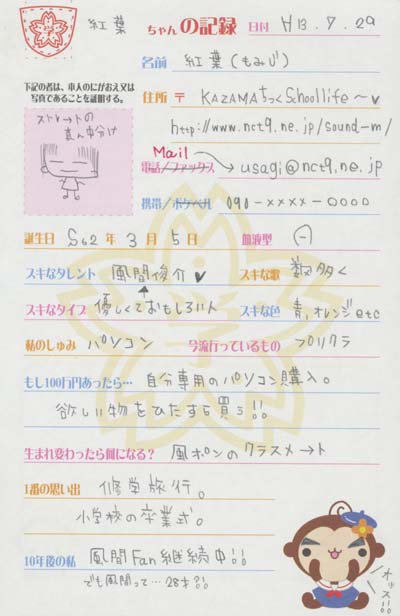 紅葉 ちゃんの記録 日付 H13.7.29
名前 紅葉(もみじ)
下記の者は、本人のにがおえ又は
写真であることを証明する。
住所 〒 KAZAMAちっくSchoollife〜♥
http://www.nct9.ne.jp/sound-m/
ストレートの
真ん中分け
Mail
電話/ファックス → usagi@nct9.ne.jp
携帯/ポケベル 090-××××-○○○○
誕生日 S62年 3月 5日 血液型
スキなタレント 風間俊介♥ スキな歌 数多く
スキなタイプ 優しくておもしろい人 スキな色 青,オレンジetc
私のしゅみ パソコン 今流行っているもの プリクラ
もし100万円あったら… 自分専用のパソコン購入。
欲しい物をひたすら買う!!
生まれ変わったら何になる? 風ポンのクラスメート
1番の思い出 修学旅行。
小学校の卒業式。
10年後の私 風間Fan継続中!!
でも風間って…28才?!
オッス!!